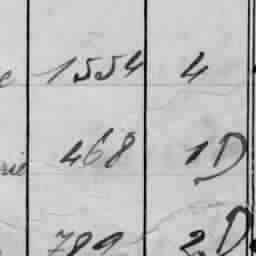 1554 4
468 1D
789 2D